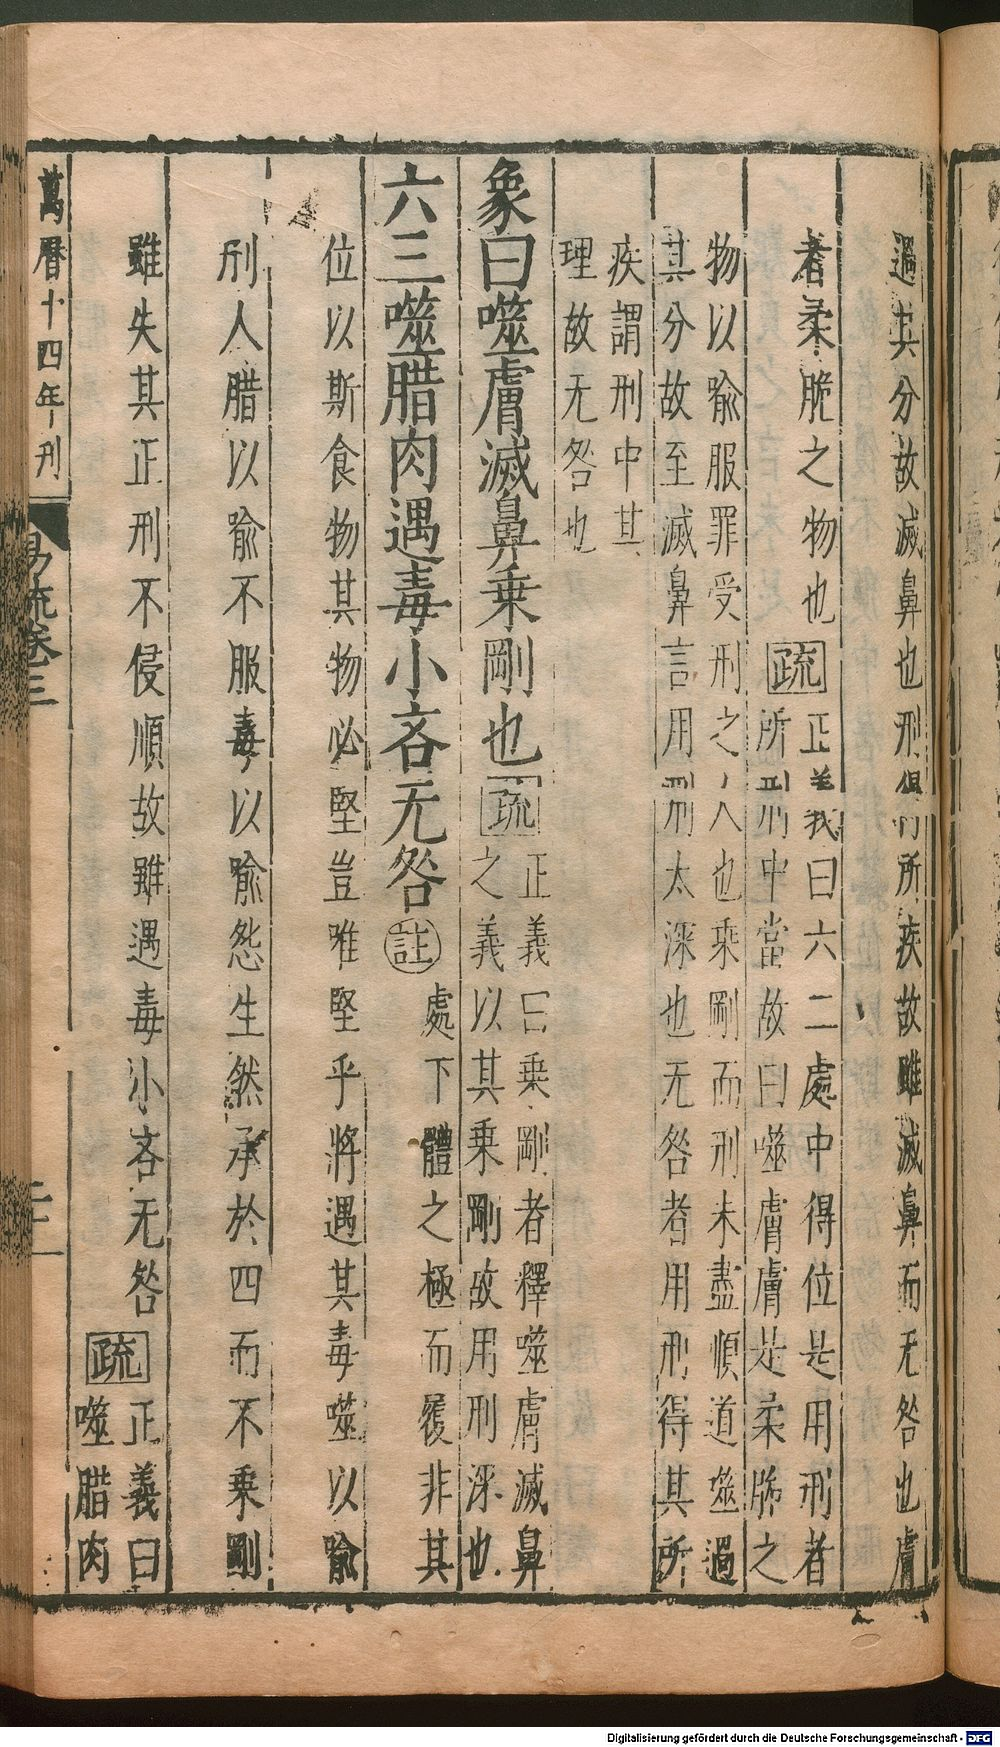 過其分故滅鼻也刑得所疾故雖滅鼻而无咎也膚
者柔脆之物也疏正義曰六二處中得位是用刑者
所刑中當故曰噬膚膚是柔脆之
物以喻服罪受刑之人也乘剛而刑未盡順道噬過
其分故至滅鼻言用刑太深也无咎者用刑得其所
疾謂刑中其
理故无咎也
象曰噬膚滅鼻乗剛也疏正義曰乗剛者釋噬膚滅鼻
之義以其乗剛故用刑深也
六三噬腊肉遇毒小吝无咎註處下體之極而履非其
位以斯食物其物必堅豈唯堅乎將遇其毒噬以喻
刑人腊以喻不服毒以喻怨生然承於四而不乗剛
雖失其正刑不侵順故雖遇毒小吝无咎疏正義曰
噬腊肉
萬曆十四年刊
易疏卷三
Digitalisierung gefördert durch die Deutsche Forschungsgemeinschaft - DFG